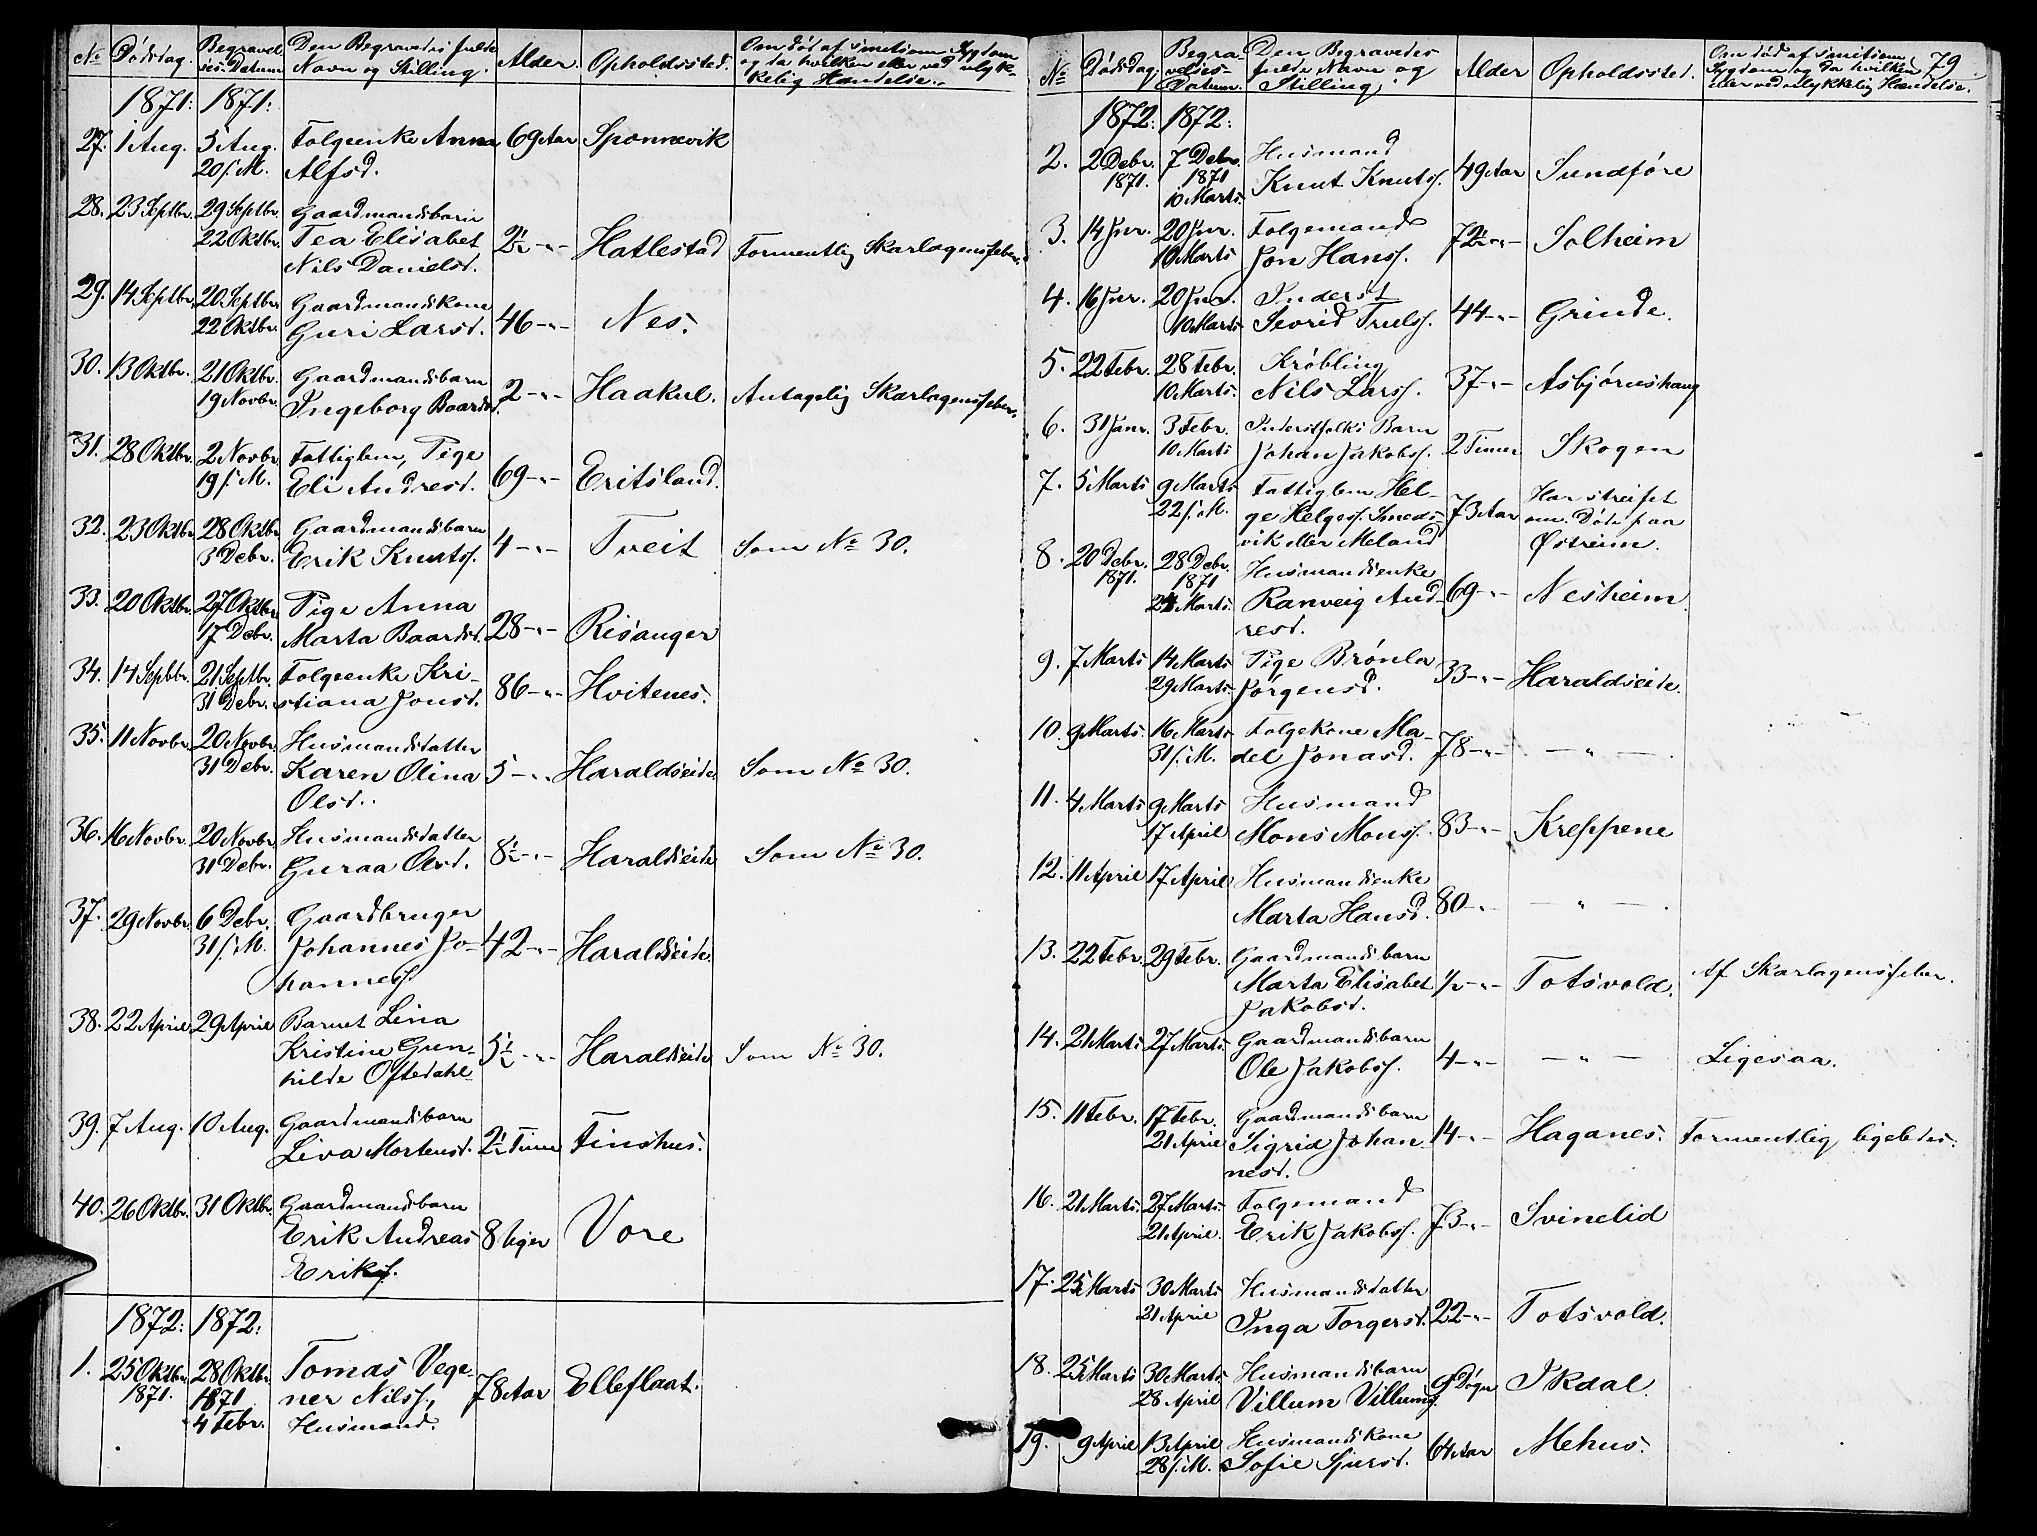 No Dødsdag. Begravel- Den Begravedes fulde Alder. Opholdssted. Om død af smitsom Sygdom
ses-Datum Navn og Stilling. og da hvilken eller ved ulyk-
kelig Hændelse.
1871: 1871:
27. 1 Aug. 5 Aug. Folgeenke Anna 69 Aar Sponnevik
20/s. M. Alfsd.
28. 23 Septbr. 29 Septbr. Gaardmandsbarn
22 Oktbr. Tea Elisabet 2½ -"- Hatlestad Formentlig Skarlagensfeber.
Nils Danielsd.
29. 14 Septbr. 20 Septbr. Gaardmandskone
22 Oktbr. Guri Larsd. 46 -"- Nes.
30. 13 Oktbr. 21 Oktbr. Gaardmandsbarn
19 Novbr. Ingeborg Baardsd. 2 -"- Haakul. Antagelig Skarlagensfeber.
31. 28 Oktbr. 2 Novbr. Fattiglem, Pige
19/s. M. Eli Andresd. 69 -"- Eritsland.
32. 23 Oktbr. 28 Oktbr. Gaardmandsbarn
3 Debr. Erik Knuts. 4 -"- Tveit Som No 30.
33. 20 Oktbr. 27 Oktbr. Pige Anna
17 Debr. Marta Baardsd. 28 -"- Risanger
34. 14 Septbr. 21 Septbr. Folgeenke Kri-
31 Debr. stiana Jonsd. 86 -"- Hvitenes.
35. 11 Novbr. 20 Novbr. Husmandsdatter
31 Debr. Karen Olina 5 -"- Haraldseide Som No 30.
Olsd.
36. 16 Novbr. 20 Novbr. Husmandsdatter
31 Debr. Guraa Olsd. 8½ -"- Haraldseide Som No 30.
37. 29 Novbr. 6 Debr. Gaardbruger
31/s. M. Johannes Jo- 42 -"- Haraldseide.
hanness.
38. 22 April 29 April Barnet Lina
Kristine Gun- 5½ -"- Haraldseide Som No 30.
hilde Oftedahl
39. 7 Aug. 10 Aug. Gaardmandsbarn
Liva Mortensd. 2½ Time Finshus.
40. 26 Oktbr. 31 Oktbr. Gaardmandsbarn
Erik Andreas 8 Uger Vore
Eriks.
1872: 1872:
1. 25 Oktbr. 28 Oktbr. Tomas Vege-
1871. 1871 ner Nilss., 78 Aar Elleflaat.
4 Febr. Husmand.
79.
No Dødsdag. Begra- Den Begravedes Alder Opholdssted. Om død af smitsom
velses- fulde Navn og Sygdom og da hvilken
Datum. Stilling. eller ved ulykkelig Hændelse.
1872: 1872:
2. 2 Debr. 7 Debr. Husmand
1871. 1871 Knut Knuts. 49 Aar Sundføre
10 Marts
3. 14 Jnr. 20 Jnr. Folgemand
10 Marts Jon Hans. 72½ -"- Solheim
4. 16 Jnr. 20 Jnr. Inderst
10 Marts Sevrid Truls. 44 -"- Grinde.
5. 22 Febr. 28 Febr. Krøbling
10 Marts. Nils Lars. 37 -"- Asbjørnshaug
6. 31 Janr. 3 Febr. Inderstfolks Barn
10 Marts Johan Jakobs. 2 Timer Skogen
7. 5 Marts 9 Marts Fattiglem Hel- Har streifet
22/s. M. ge Helges. Smeds- 73 Aar om. Døde paa
vik eller Meland Østreim.
8. 20 Debr. 28 Debr. Husmandsenke
1871. 1871 Ranveig And- 69 -"- Nesheim.
24 Marts. resd.
9. 7 Marts 14 Marts Pige Brønla
29 Marts. Jørgensd. 33 -"- Haraldseide.
10. 9 Marts. 16 Marts Folgekone Ma-
31/s. M. del Jonasd. 78 -"- — " —
11. 4 Marts 9 Marts Husmand
17 April Mons Mons. 83 -"- Kreppene
12. 11 April 17 April Husmandsenke
Marta Hansd. 80 -"- — " —
13. 22 Febr. 29 Febr. Gaardmandsbarn
Marta Elisabet ½ -"- Totsvold. Af Skarlagensfeber.
Jakobsd.
14. 21 Marts 27 Marts. Gaardmandsbarn
Ole Jakobs. 4 -"- — " — Ligesaa.
15. 11 Febr. 17 Febr. Gaardmandsbarn
21 April Sigrid Johan- 14 -"- Haganes. Formentlig ligeledes.
nesd.
16. 21 Marts. 27 Marts. Folgemand
21 April. Erik Jakobs. 73 -"- Svinelid
17. 25 Marts 30 Marts Husmandsdatter
21 April Inga Torgersd. 22 -"- Totsvold.
18. 25 Marts 30 Marts. Husmandsbarn
28 April Villum Villums. 9 Døgn Skdal.
19. 9 April 13 April Husmandskone
28/s. M. Sofie Sjursd. 64 Aar Mehus.